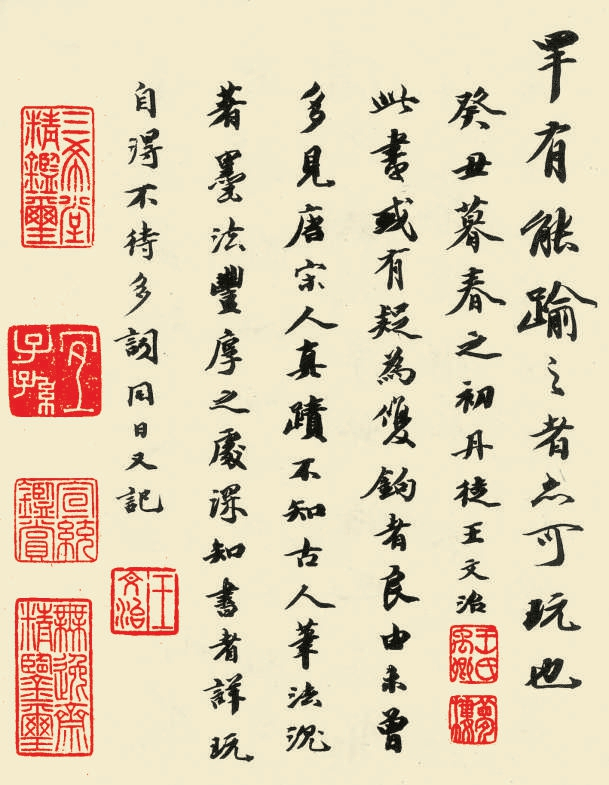 罕有能踰之者尤可玩也
癸丑暮春之初丹徒王文治
此書或有疑為雙鉤者良由未曾
多見唐宋人真蹟不知古人筆法況
著墨法豐厚之處深知書者詳玩
自得不待多詞同日又記
王氏禹卿
夢樓
王文治
三希堂精鑑璽
宜子孫
宣統鑑賞
無逸齋精鑒璽